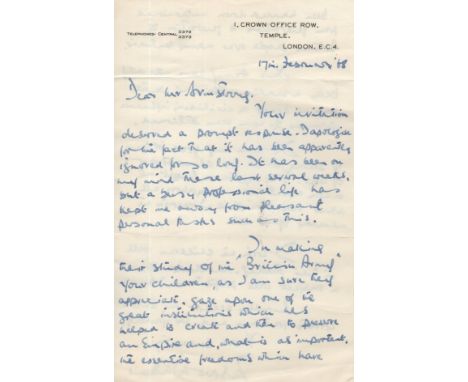 1, CROWN OFFICE ROW,
TELEPHONES: CENTRAL 3372
3373
TEMPLE,
LONDON, E.C.4.
17th February '58
Dear Mr Armstrong,
Your invitation
deserved a prompt response. I apologise
for the fact that it has been apparently
ignored for so long. It has been on
my mind these last several weeks,
but a busy professional life has
kept me away from pleasant
personal tasks such as this.
In making
their study of the "British Army"
your children, as I am sure they
appreciate, gaze upon one of the
great institutions which has
helped to create and then to preserve
an Empire and, what is as important,
the essential freedoms which have